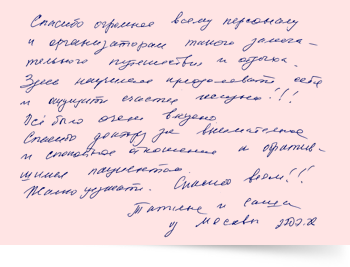 Спасибо огромное всему персоналу
и организаторам такого замеча-
тельного путешествия и отдыха.
Здесь научились преодолевать себя
и ощущать счастье !!!
Всё было очень вкусно.
Спасибо доктору за внимательное
и спокойное отношение к обратив-
шимся пациентам.
Жалко уезжать. Спасибо всем!!!
Татьяна и Саша
из Москвы